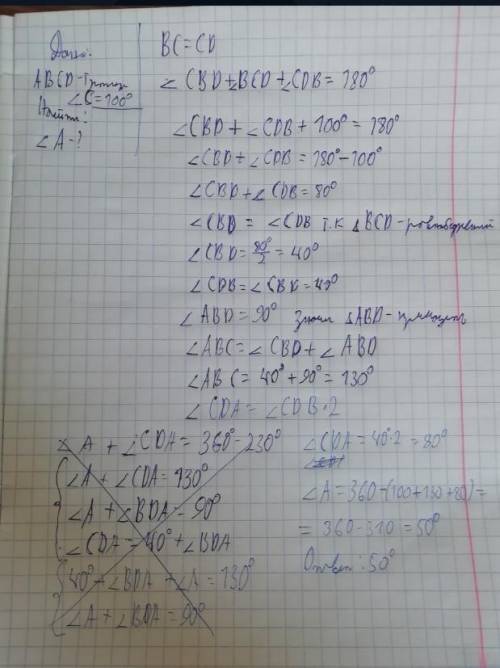 Дано:
ABCD-трапец
∠C=100°
Найти:
∠A-?
BC=CD
∠CBD+∠BCD+∠CDB=180°
∠CBD+∠CDB+100°=180°
∠CBD+∠CDB=180°-100°
∠CBD+∠CDB=80°
∠CBD=∠CDB т.к △BCD-
∠CBD=80°/2=40°
∠CDB=∠CBD=40°
∠ABD=90° значит △ABD-
∠ABC=∠CBD+∠ABD
∠ABC=40°+90°=130°
∠CDA=∠CDB·2
∠A+∠CDA=360°-230°
∠A+∠CDA=130°
∠A+∠BDA=90°
∠CDA=40°+∠BDA
40°+∠BDA+∠A=130°
∠A+∠BDA=90°
∠CDA=40°·2=80°
∠A=360-(100+130+80)=
=360-310=50°
Ответ:50°